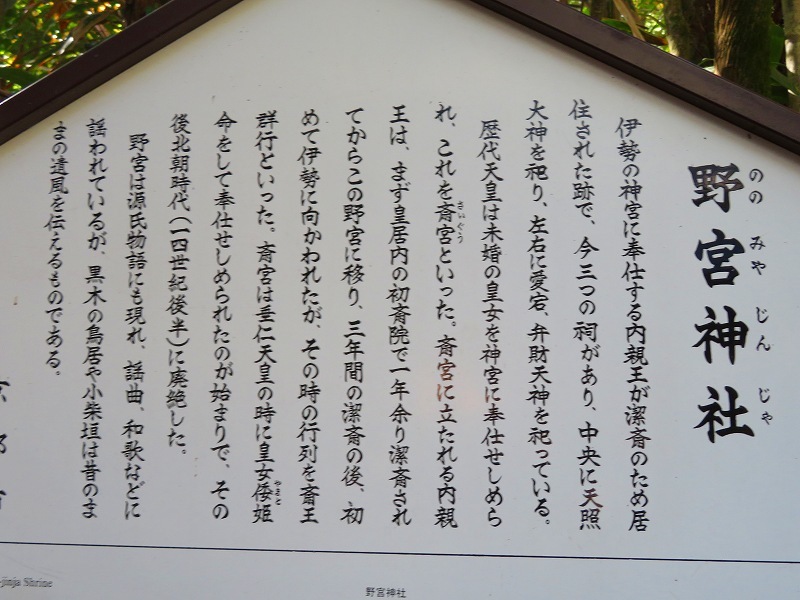 野宮神社
ののみやじんじゃ
伊勢の神宮に奉仕する内親王が潔斎のため居
住された跡で、今三つの祠があり、中央に天照
大神を祀り、左右に愛宕、弁財天神を祀っている。
歴代天皇は未婚の皇女を神宮に奉仕せしめら
れ、これを斎宮といった。斎宮に立たれる内親
さいぐう
王は、まず皇居内の初斎院で一年余り潔斎され
てからこの野宮に移り、三年間の潔斎の後、初
めて伊勢に向かわれたが、その時の行列を斎王
群行といった。斎宮は垂仁天皇の時に皇女倭姫
やまと
命をして奉仕せしめられたのが始まりで、その
後北朝時代(一四世紀後半)に廃絶した。
野宮は源氏物語にも現れ、謡曲、和歌などに
謡われているが、黒木の鳥居や小柴垣は昔のま
まの遺風を伝えるものである。
京都市
-jinja Shrine
野宮神社